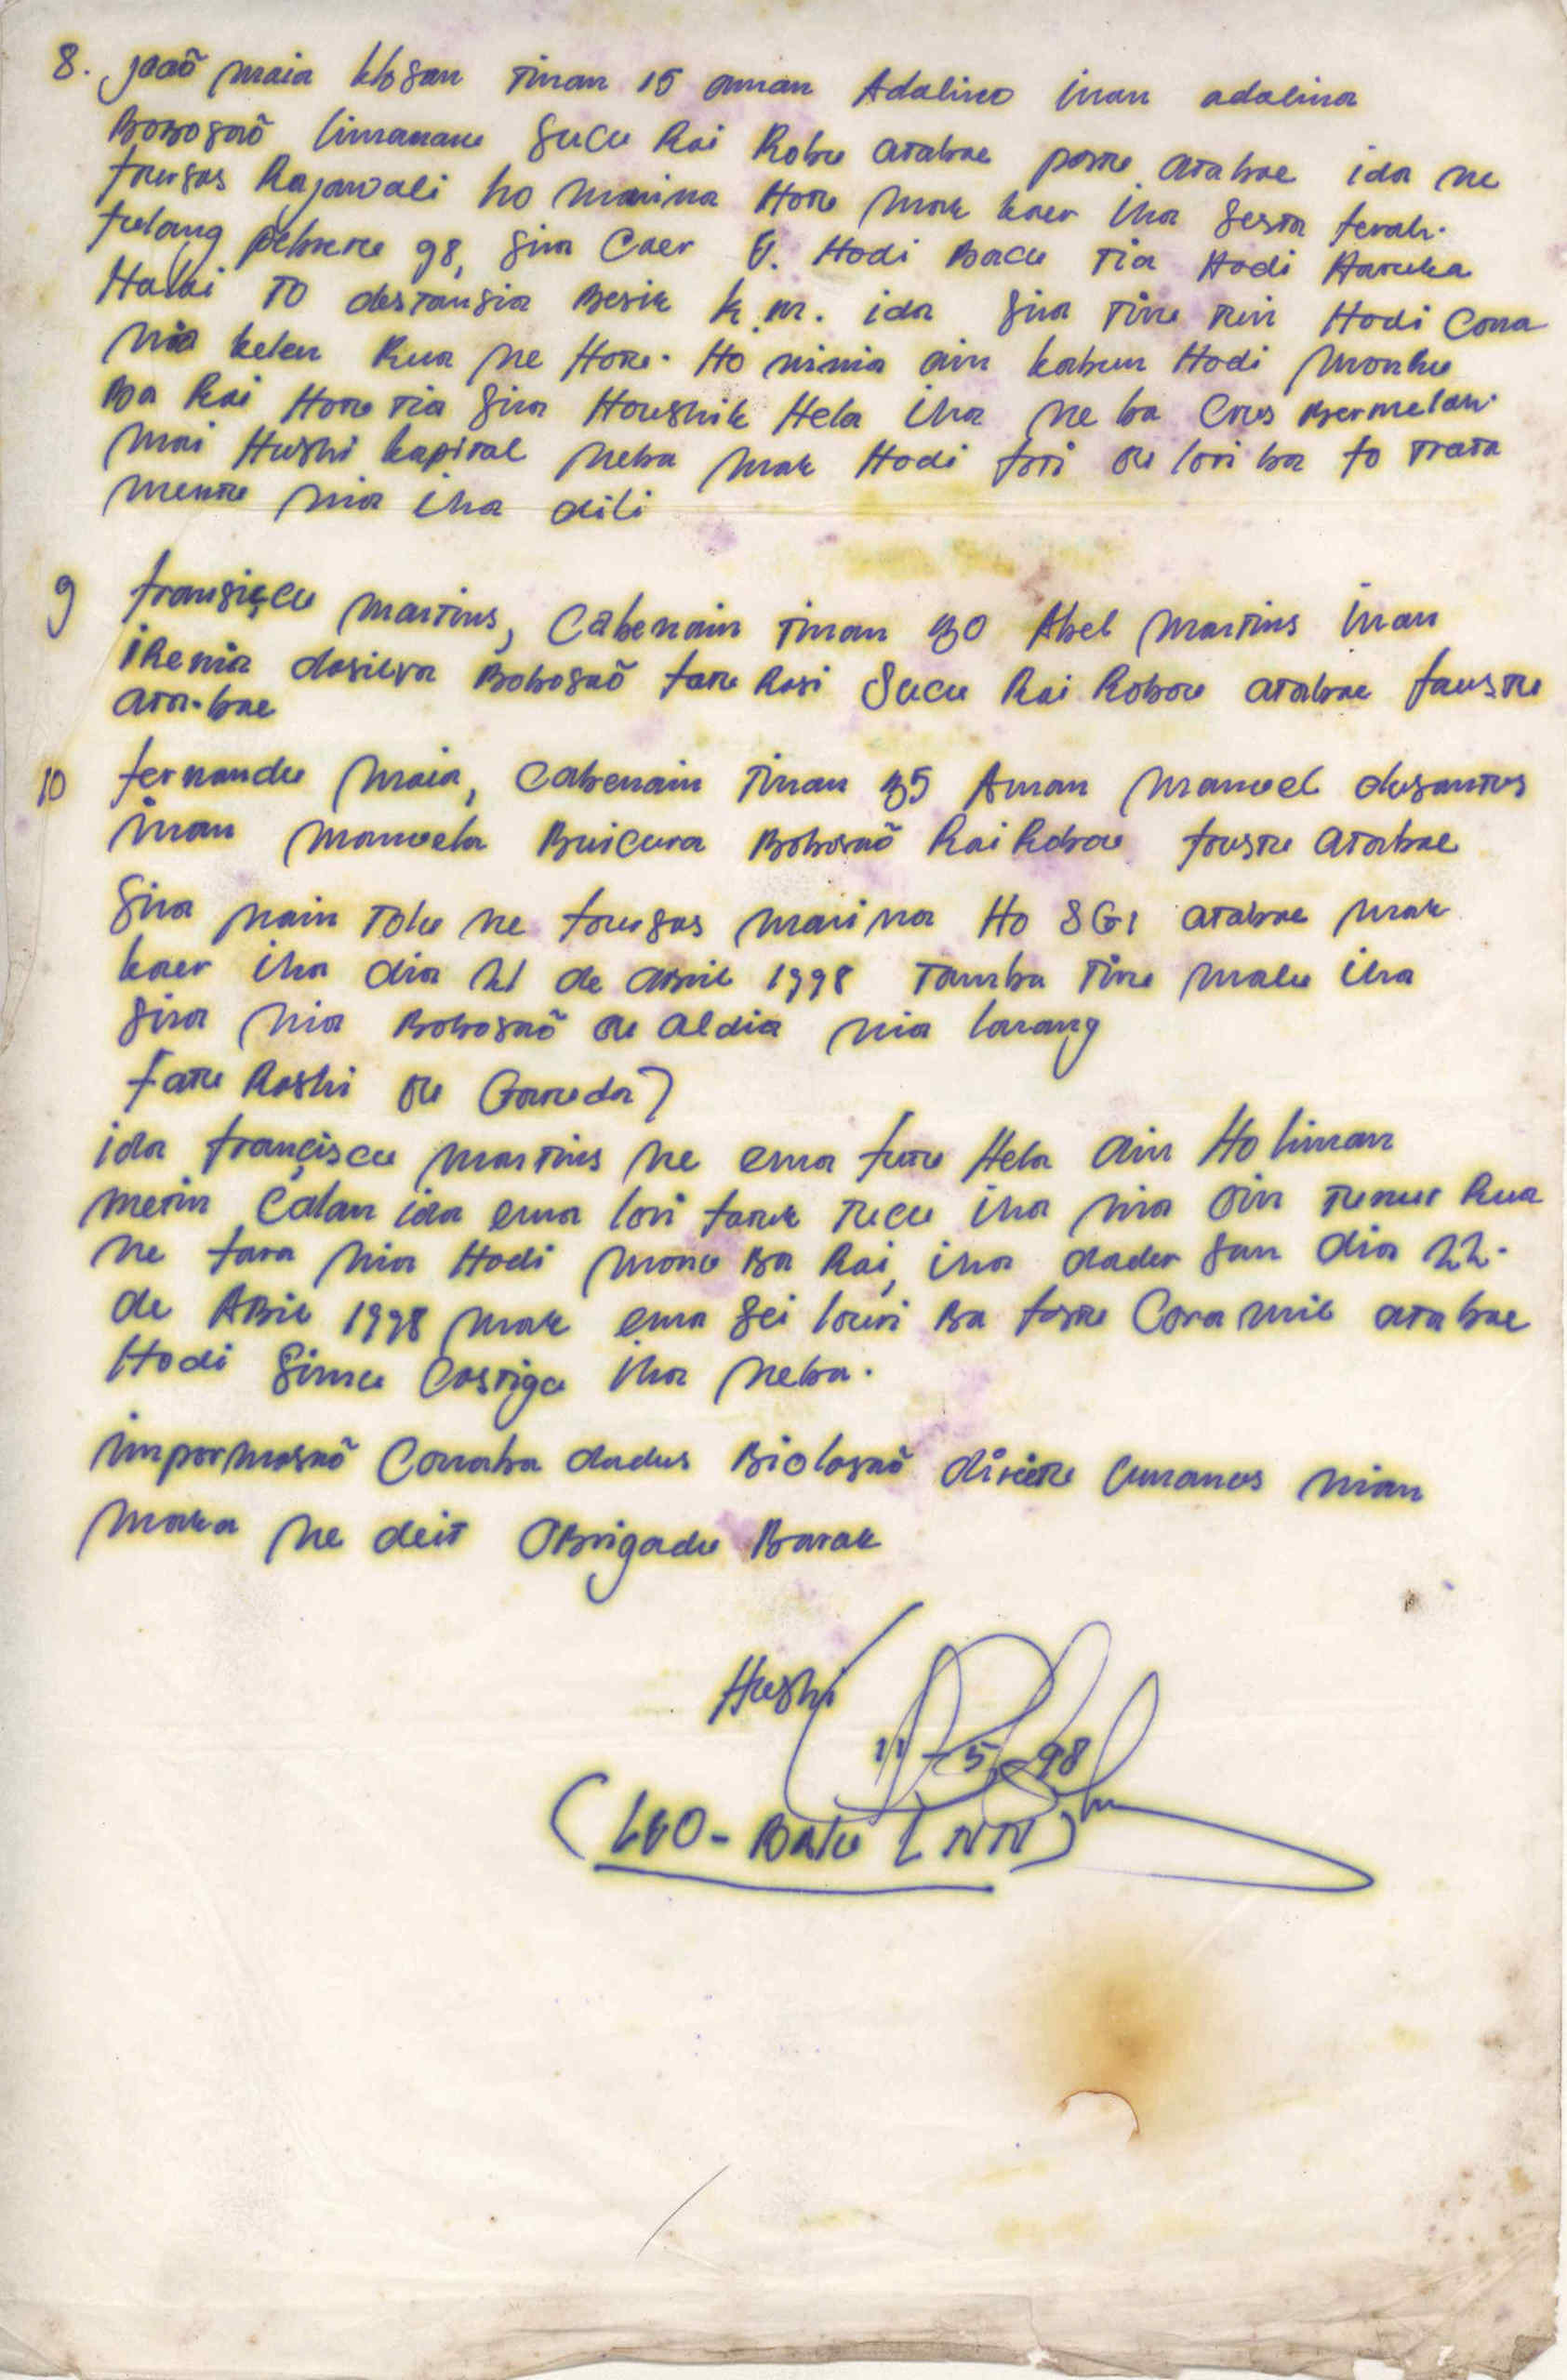 8. joaõ maia klosan Tinan 15 aman Adalino inan adalina
Bobosaõ limanane Sucu Rai Robu atabae poste atabae ida ne
foursas Rajawali ho marina Hotu mak kaer iha sesta feráh.
fulang pebreru 98, sira Caer O. Hodi Bacu Tia Hodi Haruka
Halai TO destansia Besik k.m. ida sira Tiru Tiin Hodi Cona
nia kelen Rua ne Hotu. Ho ninia ain kabun Hodi monhu
Ba Rai Hotu Tia sira Houshik Hela iha ne ba Crus Bermelah.
mai Hushi kapital neba mak Hodi fori ou lori ba fo Trata
mentu nia iha dili
9 fransiscu martins, Cabenain Tinan 30 Abel martins inan
iRenia dasilva Bobosaõ fatu Rasi Sucu Rai Robou atabae faustu
ata-bae
10 fernandu maia, Cabenain Tinan 35 Aman manuel dusantus
inan manuela Buicura Bobosaõ Rai Robou foustu atabae
Sira nain Tolu ne foursas marina Ho SGI atabae mak
kaer iha dia 21 de abril 1998 Tamba Tiru malu iha
sira nia Bobosaõ ou aldia nia larang
fatu Rashi ou Garuda)
ida françiscu martins ne ema futu Hela ain Ho liman
metin Calan ida ema lori faruk Tucu iha nia oin Tunur Rua
ne fara nia Hodi monu Ba Rai, iha dader san dia 22.
de ABil 1998 mak ema sei louri Ba fostu Coramil atabae
Hodi simu Castigu iha neba.
impormasaõ Conaba dadus Biolasaõ direitu umanus nian
maka ne deit OBrigadu Barak
Hushi
11-5-98
(LEO-BAku (NN)